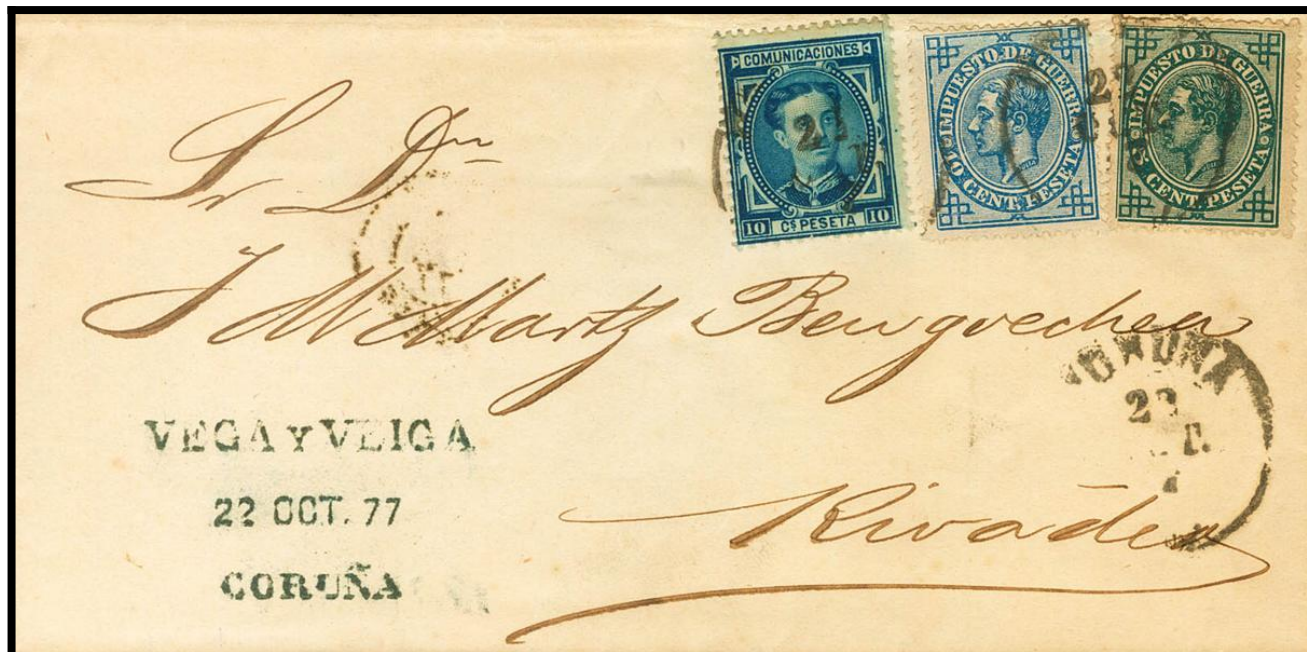 COMUNICACIONES
10 Cs PESETA 10
IMPUESTO DE GUERRA
10 CENT. PESETA
IMPUESTO DE GUERRA
5 CENT. PESETA
Sr Dn
J M Martz
Rivadeo
VEGA Y VEIGA
22 OCT. 77
CORUÑA
CORUÑA